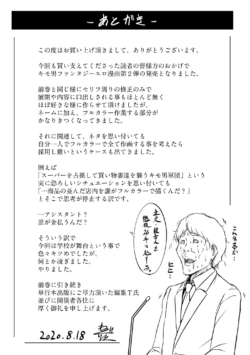 －あとがき－
この度はお買い上げ頂きまして、ありがとうございます。
今回も買い支えてくださった読者の皆様方のおかげで
キモ男ファンタジーエロ漫画第２弾の発売となりました。
前巻と同様にセリフ周りの修正のみで
展開や内容に口出しされる事もほとんど無く
ほぼ好きな様に作らせて頂けましたが、
ネームに加え、フルカラー作業する部分が
かなりきつくなってきました。
それに関連して、ネタを思い付いても
自分一人でフルカラーで全て作画する事を考えたら
採用し難いというケースも出てきました。
例えば
「スーパーを占拠して買い物妻達を襲うキモ男軍団」という
実に恐ろしいシチュエーションを思い付いても
「…商品の並んだ店内を誰がフルカラーで描くんだ？」
とそこで思考が停止する訳です。
―アシスタント？
誰が金払うんだ？
そういう訳で
今回は学校が舞台という事で
色々キツめでしたが、
何とか凌ぎました。
やりました。
前巻に引き続き
単行本出版にご尽力頂いた編集T氏
並びに関係者各位に
厚く御礼を申し上げます。
2020.8.18